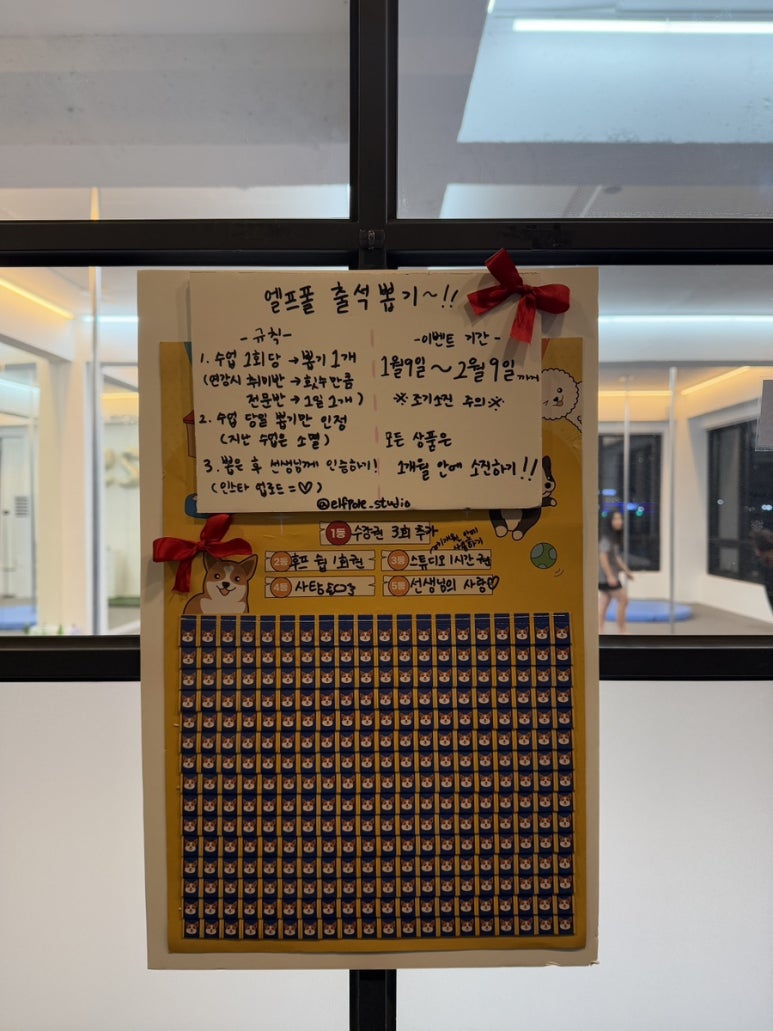 엘프폴 출석 뽑기~!!
-규칙-
1. 수업 1회당 → 뽑기 1개
(연강시 취미반 → 횟수만큼
전문반 → 1일 1개)
2. 수업 당일 뽑기만 인정
(지난 수업은 소멸)
3. 뽑은 후 선생님께 인증하기!
(인스타 업로드 = ♡)
-이벤트 기간-
1월9일 ~ 2월 9일까지
※ 조기소진 주의 ※
모든 상품은
1개월 안에 소진하기!!
@elfpole_studio
1등 수강권 3회 추가
2등 후프 1회권
3등 스튜디오 1시간 권
4등 사탕
5등 선생님의 사랑♡